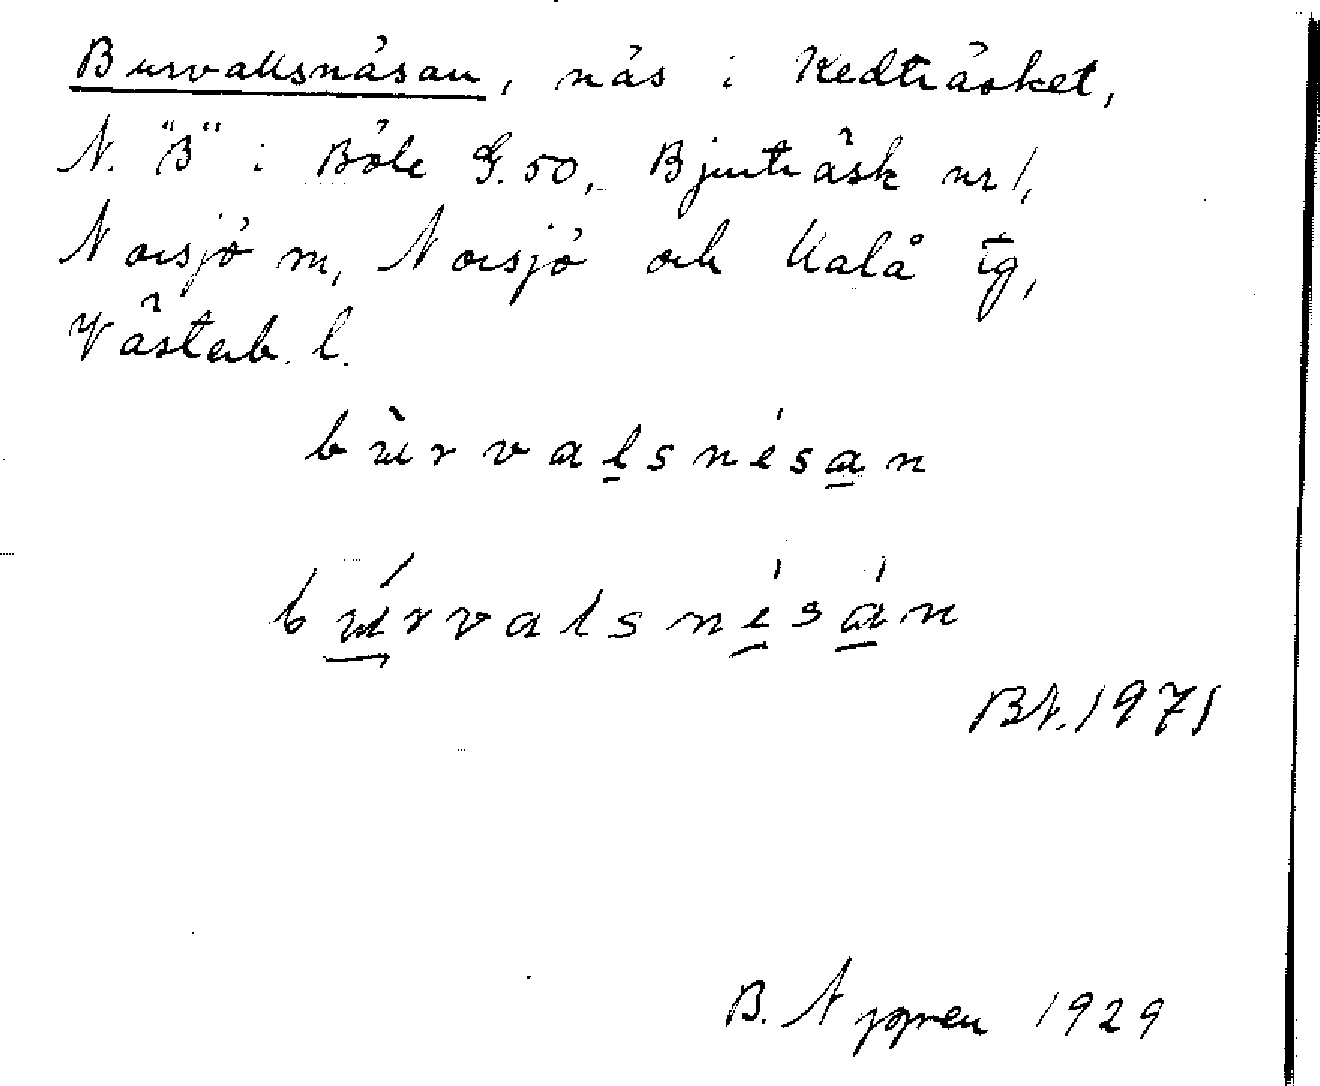 Burvallsnäsan, näs i Kedträsket,
N. "B" i Böle G.50, Bjurträsk nr 1,
Norsjö sn, Norsjö och Malå tg,
Västerb. l.
bùrvalsnésan
búrvalsnésán
Bt. 1971
B. Nygren 1929